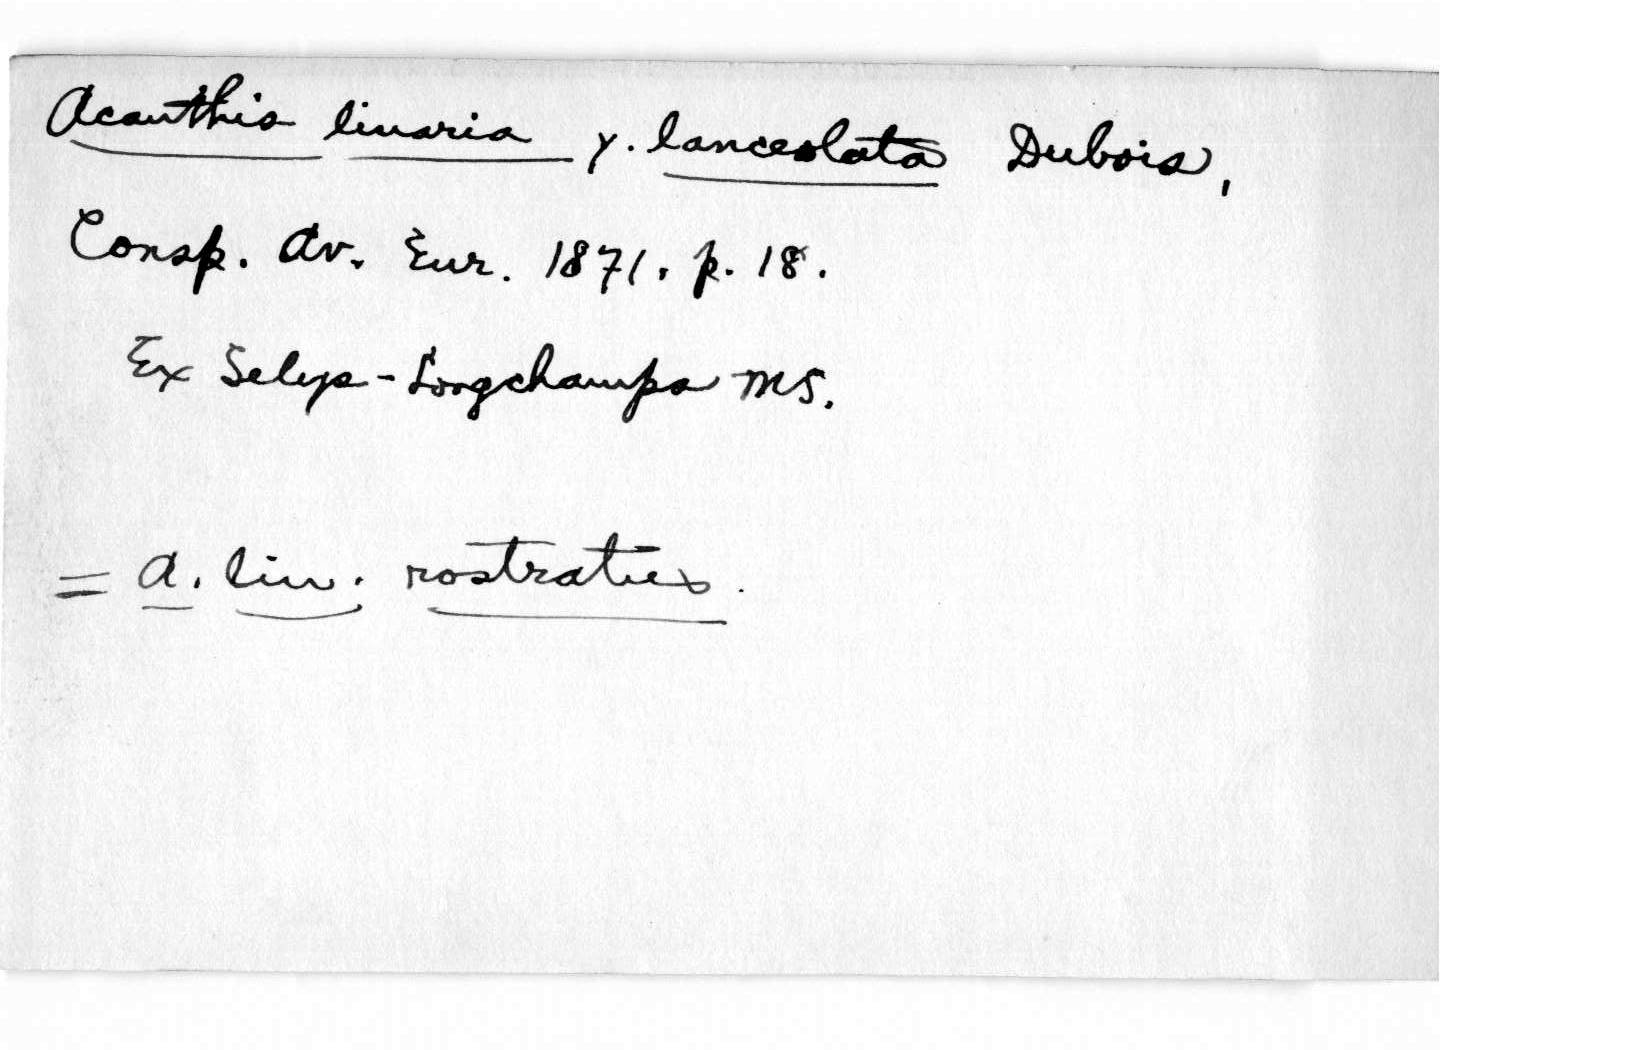 Acanthis linaria γ. lanceolata Dubois,
Consp. Av. Eur. 1871. p. 18.
Ex Selys-Longchamps MS.
= A. lin. rostrata.